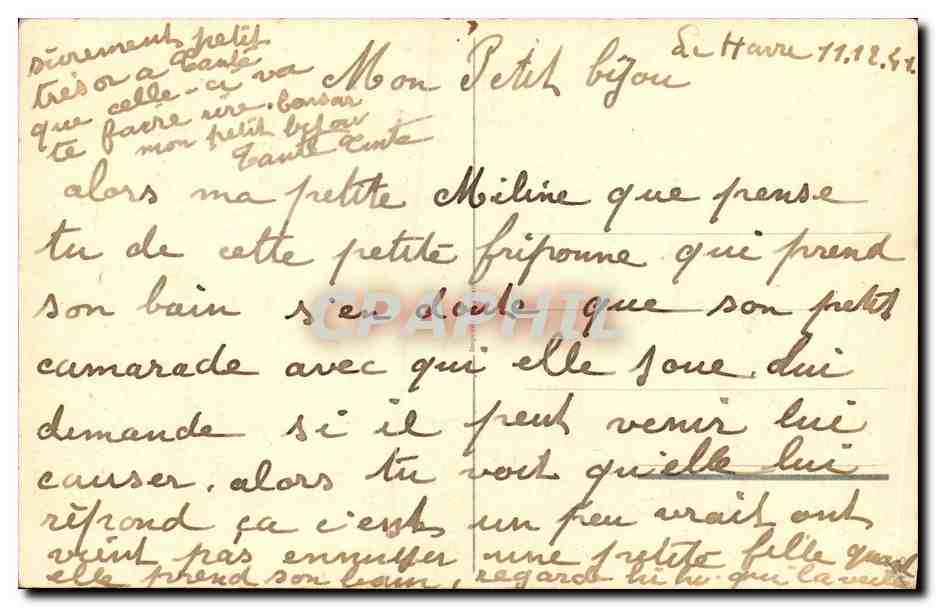 Le Havre 11.12.41.
Mon Petit bijou
alors ma petite Miline que pense
tu de cette petite friponne qui prend
son bain s'en doute que son petit
camarade avec qui elle joue. lui
demande si il peut venir lui
causer. alors tu voit qu'elle lui
répond ça c'est un peu vrait ont
vient pas ennuyer une petite fille quand
elle prend son bain, regarde hi hi. qui la
sûrement petit
trésor a Tante
que celle-ci va
te faire rire. bonsoir
mon petit bijou
Tante Tinte
CPAPHIL